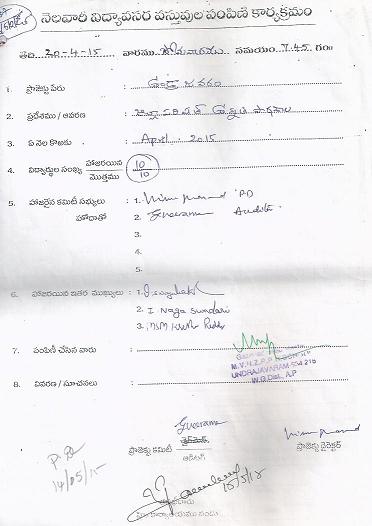 నెలవారీ విద్యావసర వస్తువుల పంపిణీ కార్యక్రమం
తేది 20-4-15 వారము సోమవారము సమయం 7.45 గం॥
1. ప్రాజెక్టు పేరు : ఉండ్రాజవరం
2. ప్రదేశము / ఆవరణ : జిల్లా పరిషత్ ఉన్నత పాఠశాల
3. ఏ నెల కొఱకు : April, 2015
4. విద్యార్థుల సంఖ్య హాజరయిన / మొత్తము : 10/10
5. హాజరైన కమిటీ సభ్యులు : 1. PD
హోదాతో 2. Auditor
3.
4.
5.
6. హాజరయిన ఇతర ముఖ్యులు : 1.
2. I. Naga Sundari
3. Reddy
7. పంపిణీ చేసిన వారు :
UNDRAJAVARAM-534 216
W.G.Dist., A.P
8. వివరణ / సూచనలు :
ప్రాజెక్టు కమిటీ ఆడిటర్ ప్రాజెక్టు డైరెక్టర్
14/05/15
15/5/15